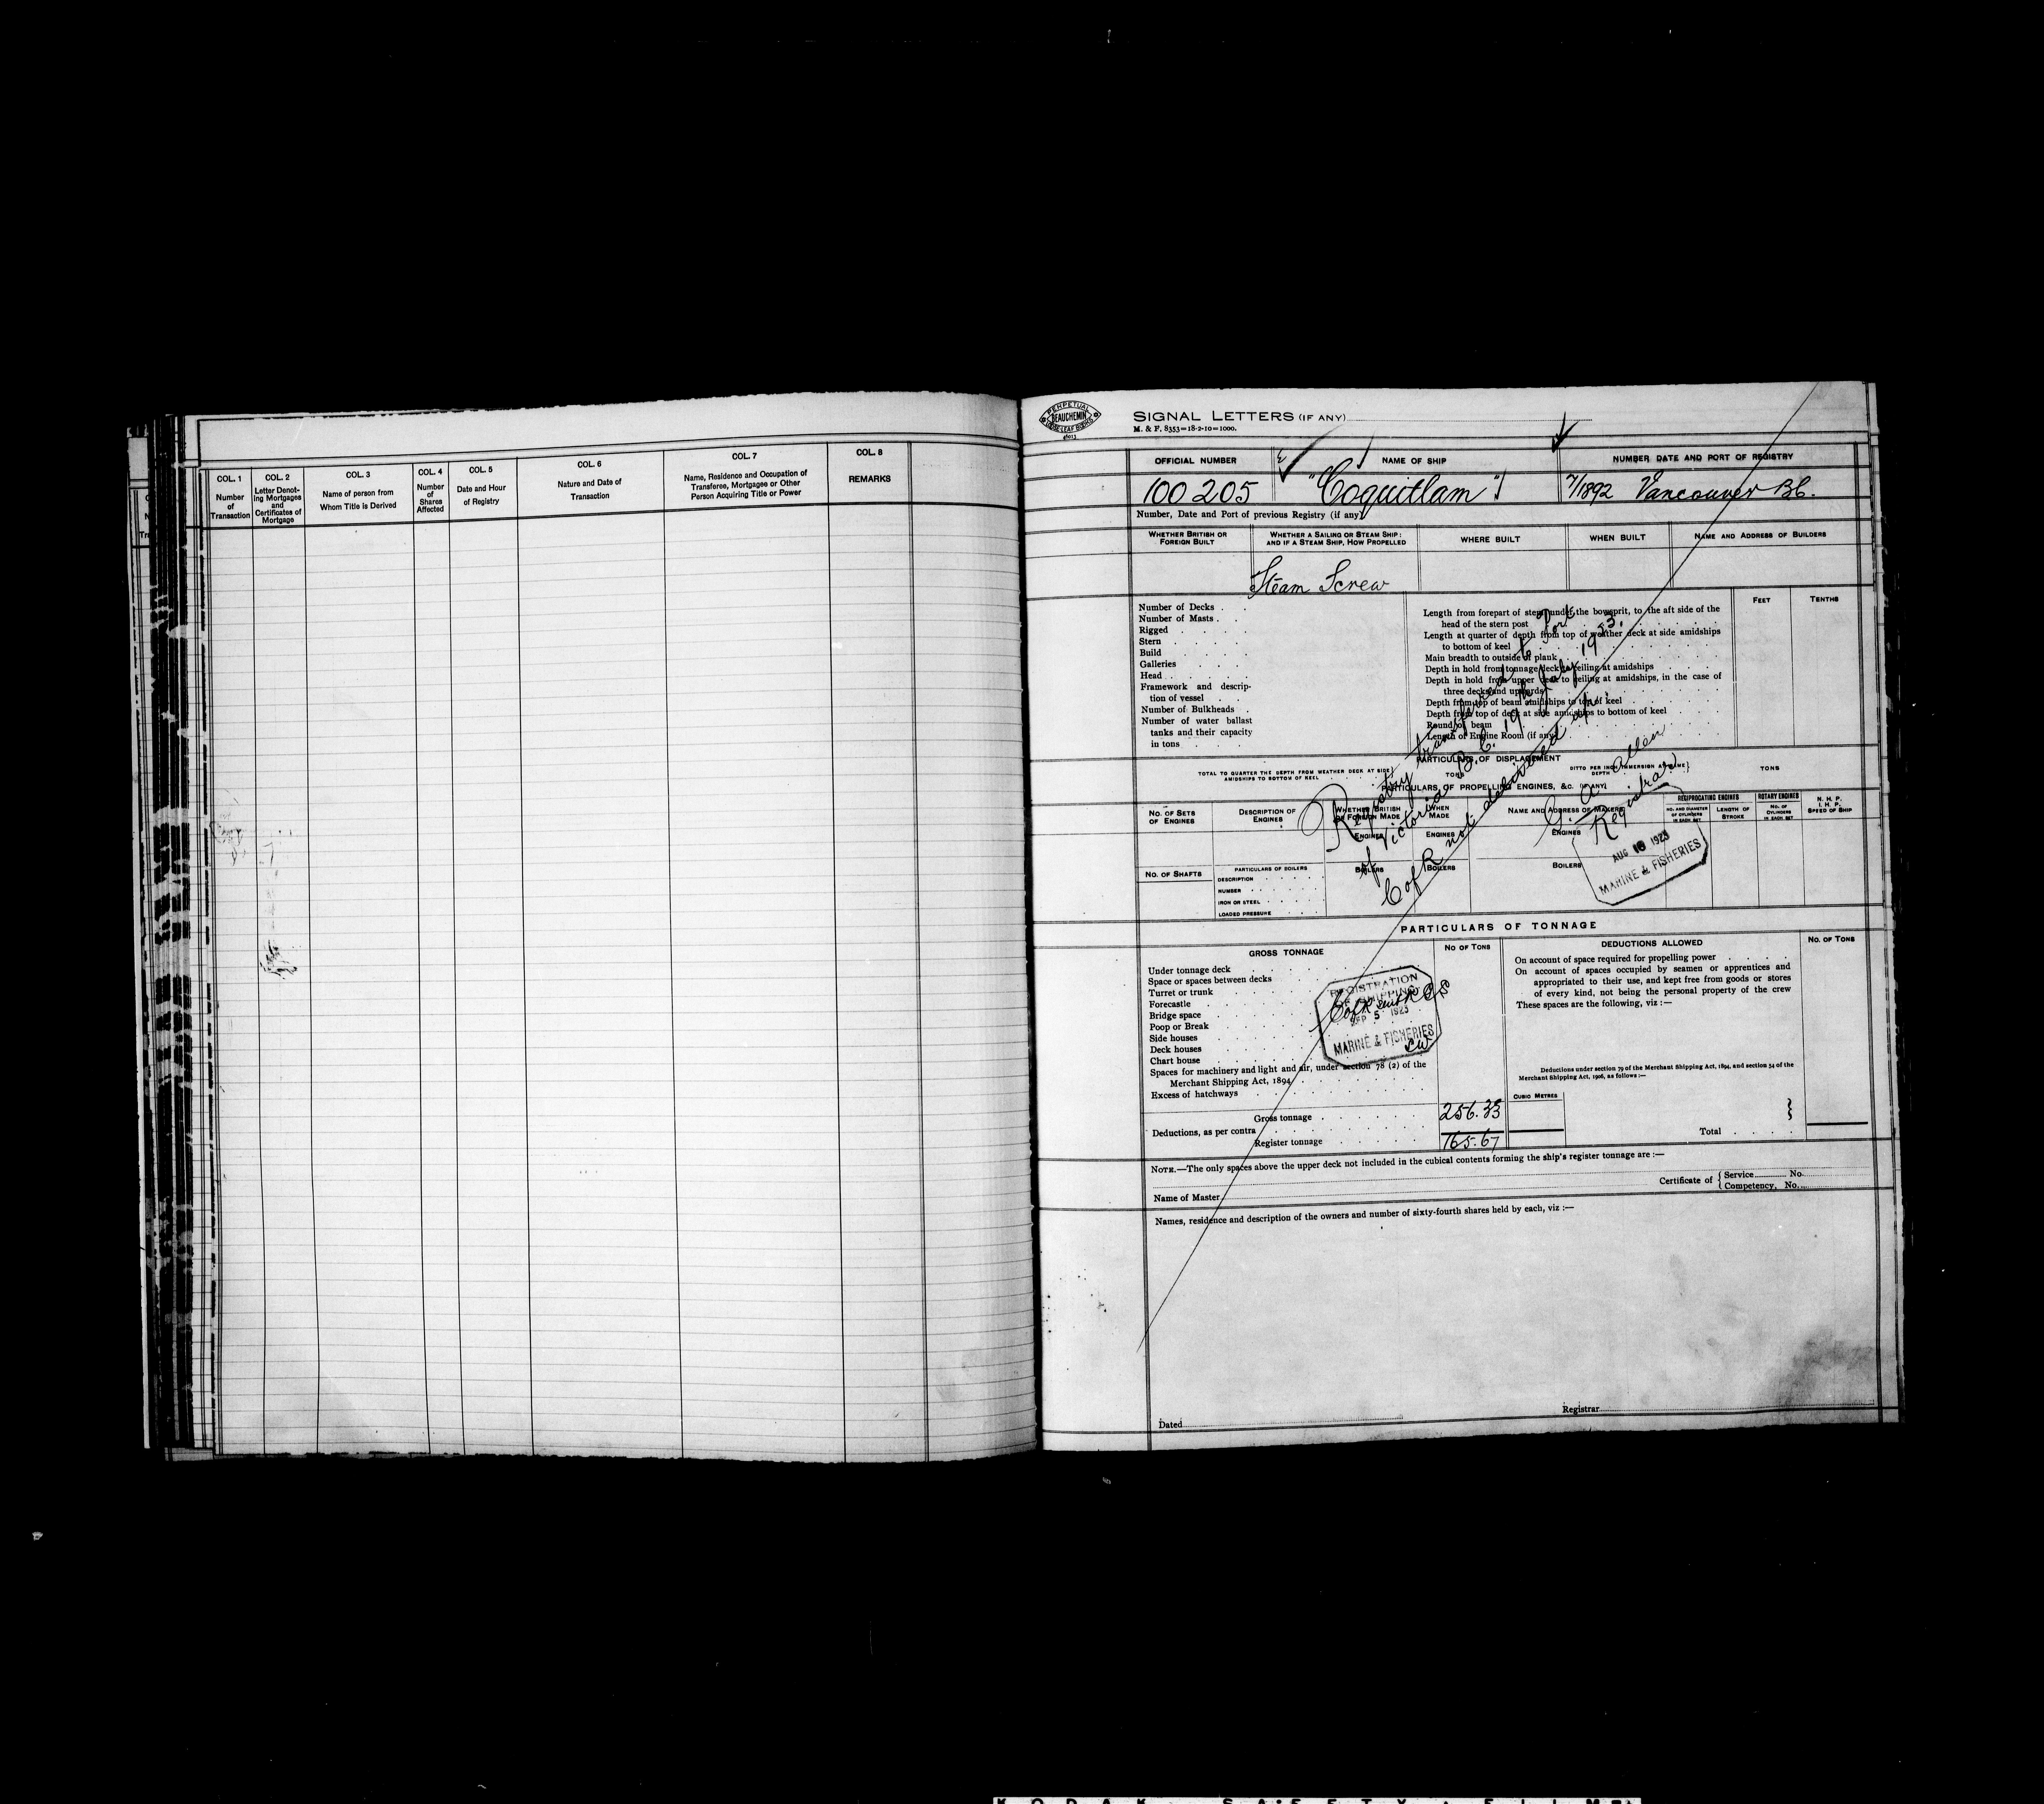 COL. 1
Number
of
Transaction
COL. 2
Letter Denot-
ing Mortgages
and
Certificates of
Mortgage
COL. 3
Name of person from
Whom Title is Derived
COL. 4
Number
of
Shares
Affected
COL. 5
Date and Hour
of Registry
COL. 6
Nature and Date of
Transaction
COL. 7
Name, Residence and Occupation of
Transferee, Mortgagee or Other
Person Acquiring Title or Power
COL. 8
REMARKS
PERPETUAL
BEAUCHEMIN
SIGNAL LETTERS (IF ANY)
M. & F. 8353—18-2-10—1000.
OFFICIAL NUMBER
NAME OF SHIP
NUMBER DATE AND PORT OF REGISTRY
100205
"Coquitlam"
7/1892 Vancouver B.C.
Number, Date and Port of previous Registry (if any)
WHETHER BRITISH OR
FOREIGN BUILT
WHETHER A SAILING OR STEAM SHIP:
AND IF A STEAM SHIP, HOW PROPELLED
WHERE BUILT
WHEN BUILT
NAME AND ADDRESS OF BUILDERS
Steam Screw
Number of Decks
Number of Masts
Rigged
Stern
Build
Galleries
Head
Framework and descrip-
tion of vessel
Number of Bulkheads
Number of water ballast
tanks and their capacity
in tons
FEET
TENTHS
Length from forepart of stem under the bowsprit, to the aft side of the
head of the stern post
Length at quarter of depth from top of weather deck at side amidships
to bottom of keel
Main breadth to outside of plank
Depth in hold from tonnage deck to ceiling at amidships
Depth in hold from upper deck to ceiling at amidships, in the case of
three decks and upwards
Depth from top of beam amidships to top of keel
Depth from top of deck at side amidships to bottom of keel
Round of beam
Length of Engine Room (if any)
Registry transferred to Port
of Victoria B.C. 19th July 1923.
C of R not delivered up.
Allen
Registrar
PARTICULARS OF DISPLACEMENT
TOTAL TO QUARTER THE DEPTH FROM WEATHER DECK AT SIDE
AMIDSHIPS TO BOTTOM OF KEEL
TONS
DITTO PER INCH IMMERSION AT SAME
DEPTH
TONS
PARTICULARS OF PROPELLING ENGINES, &C. (IF ANY)
NO. OF SETS
OF ENGINES
DESCRIPTION OF
ENGINES
WHETHER BRITISH
OR FOREIGN MADE
WHEN
MADE
NAME AND ADDRESS OF MAKERS
RECIPROCATING ENGINES
NO. AND DIAMETER
OF CYLINDERS
IN EACH SET
LENGTH OF
STROKE
ROTARY ENGINES
NO. OF
CYLINDERS
IN EACH SET
N. H. P.
I. H. P.
SPEED OF SHIP
ENGINES
ENGINES
ENGINES
AUG 1923
MARINE & FISHERIES
NO. OF SHAFTS
PARTICULARS OF BOILERS
DESCRIPTION
NUMBER
IRON OR STEEL
LOADED PRESSURE
BOILERS
BOILERS
BOILERS
PARTICULARS OF TONNAGE
GROSS TONNAGE
NO OF TONS
DEDUCTIONS ALLOWED
NO. OF TONS
Under tonnage deck
Space or spaces between decks
Turret or trunk
Forecastle
Bridge space
Poop or Break
Side houses
Deck houses
Chart house
Spaces for machinery and light and air, under section 78 (2) of the
Merchant Shipping Act, 1894
Excess of hatchways
REGISTRATION
OF SHIPPING
C of R
SEP 5 1923
MARINE & FISHERIES
Gross tonnage
256.33
Deductions, as per contra
Register tonnage
165.67
On account of space required for propelling power
On account of spaces occupied by seamen or apprentices and
appropriated to their use, and kept free from goods or stores
of every kind, not being the personal property of the crew
These spaces are the following, viz :—
Deductions under section 79 of the Merchant Shipping Act, 1894, and section 54 of the
Merchant Shipping Act, 1906, as follows:—
CUBIC METRES
Total
NOTE.—The only spaces above the upper deck not included in the cubical contents forming the ship's register tonnage are :—
Name of Master
Certificate of
Service No
Competency, No.
Names, residence and description of the owners and number of sixty-fourth shares held by each, viz :—
Dated
Registrar